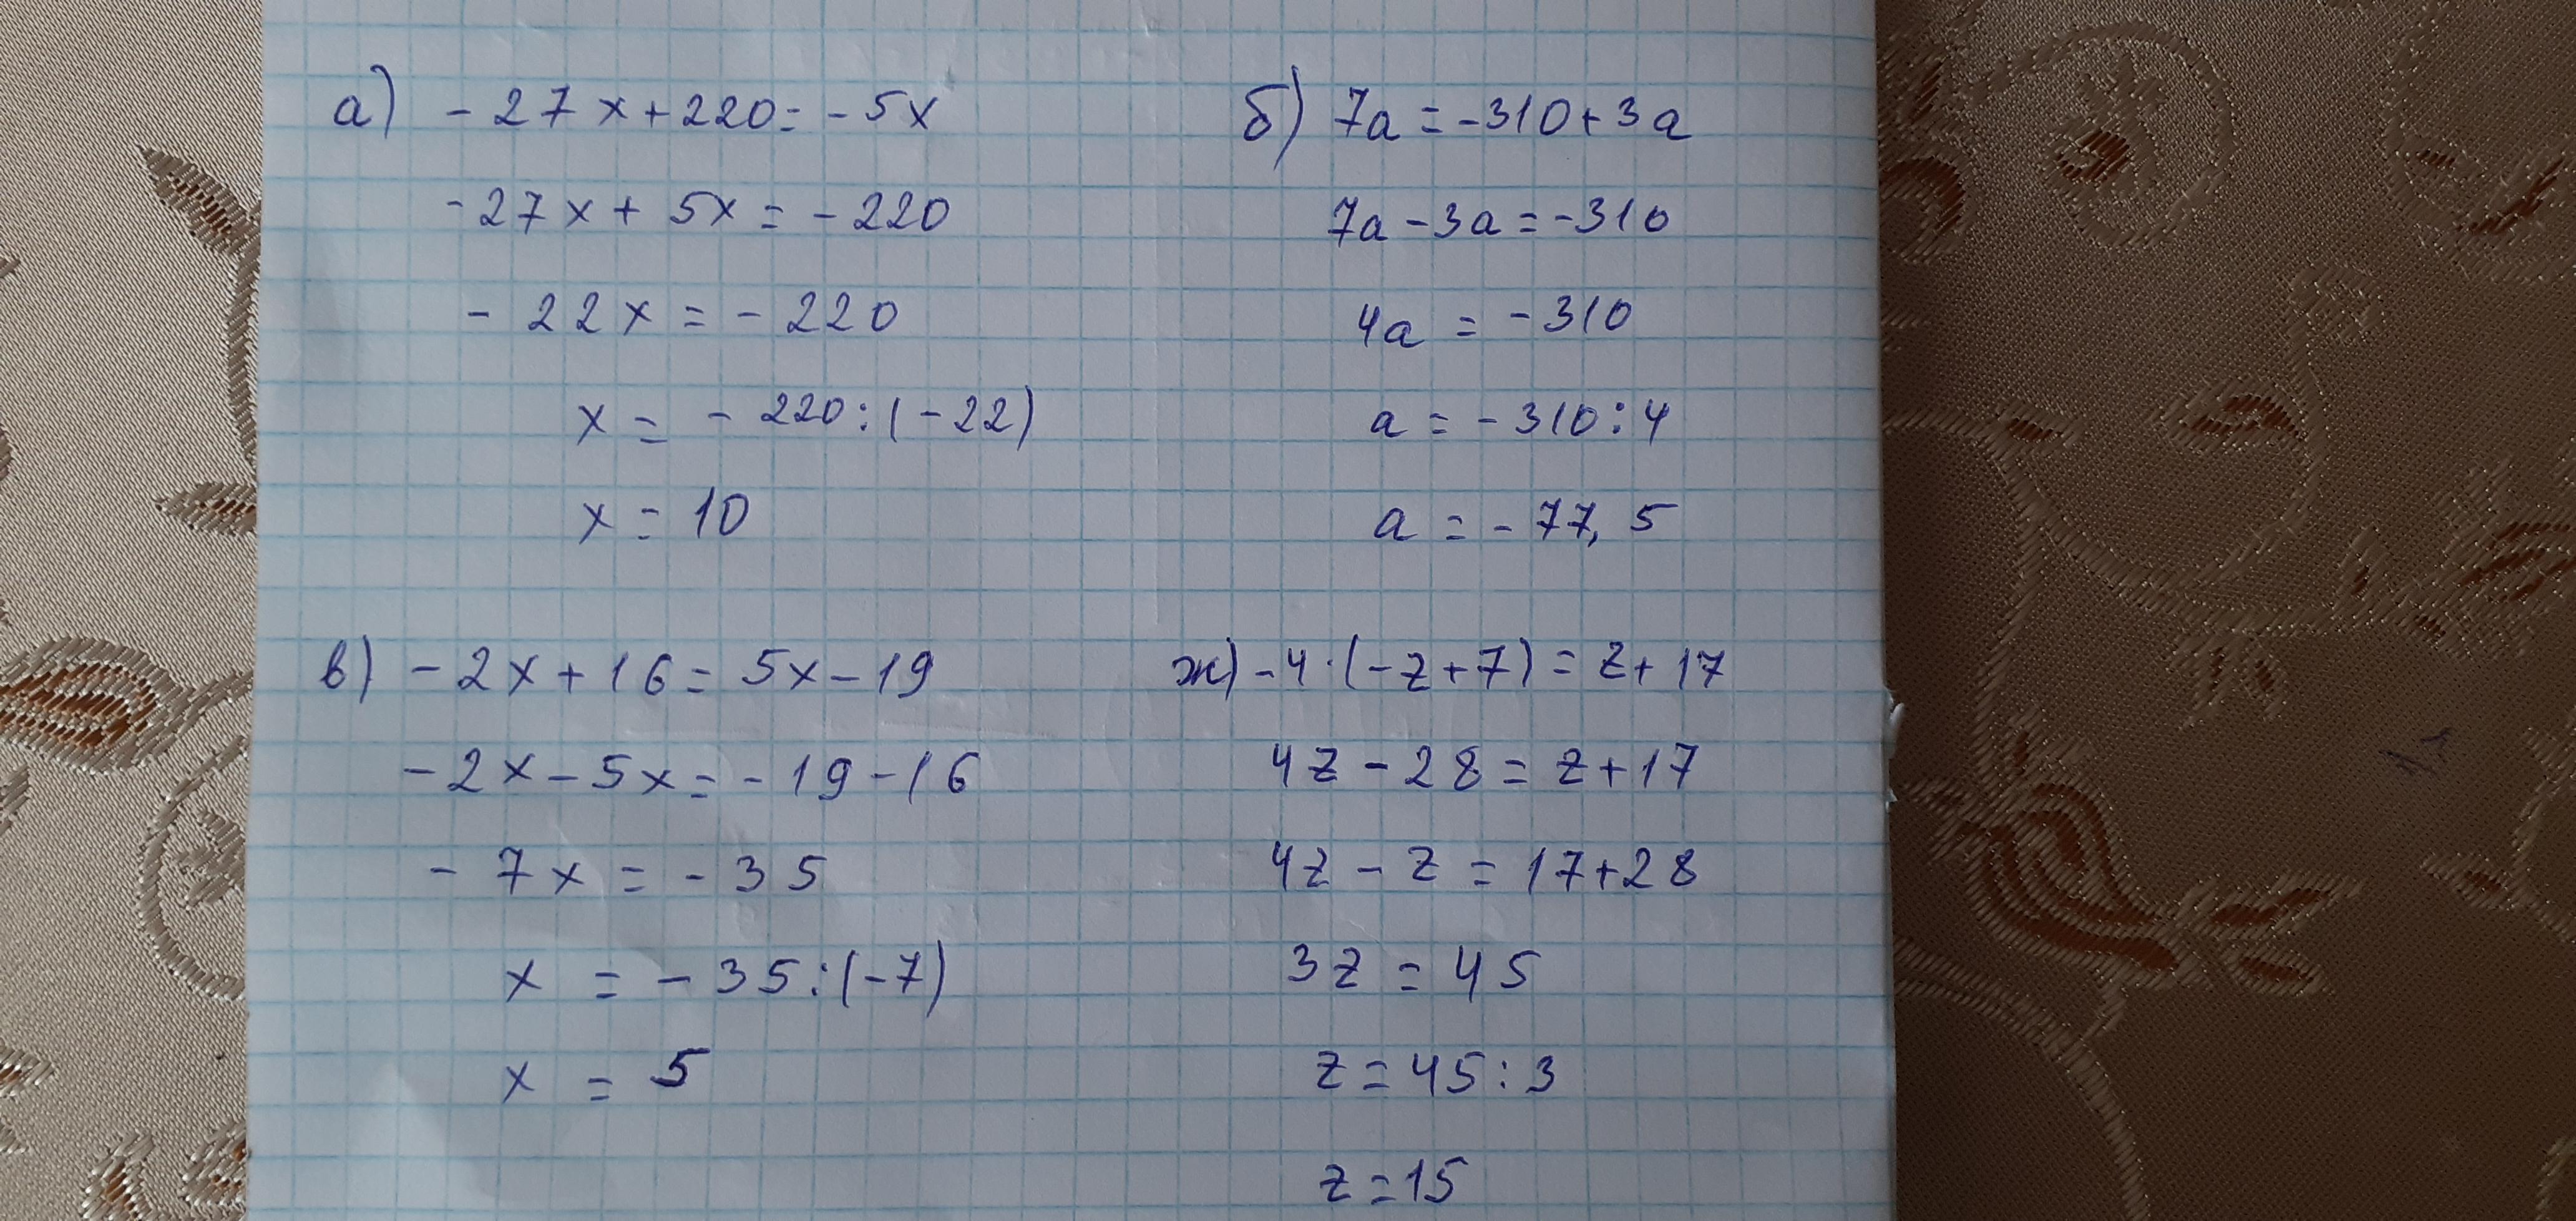 а) - 27x + 220 = - 5x
- 27x + 5x = - 220
- 22x = - 220
x = - 220 : (- 22)
x = 10
б) 7a = - 310 + 3a
7a - 3a = - 310
4a = - 310
a = - 310 : 4
a = - 77,5
в) - 2x + 16 = 5x - 19
- 2x - 5x = - 19 - 16
- 7x = - 35
x = - 35 : (- 7)
x = 5
ж) - 4 · (- z + 7) = z + 17
4z - 28 = z + 17
4z - z = 17 + 28
3z = 45
z = 45 : 3
z = 15